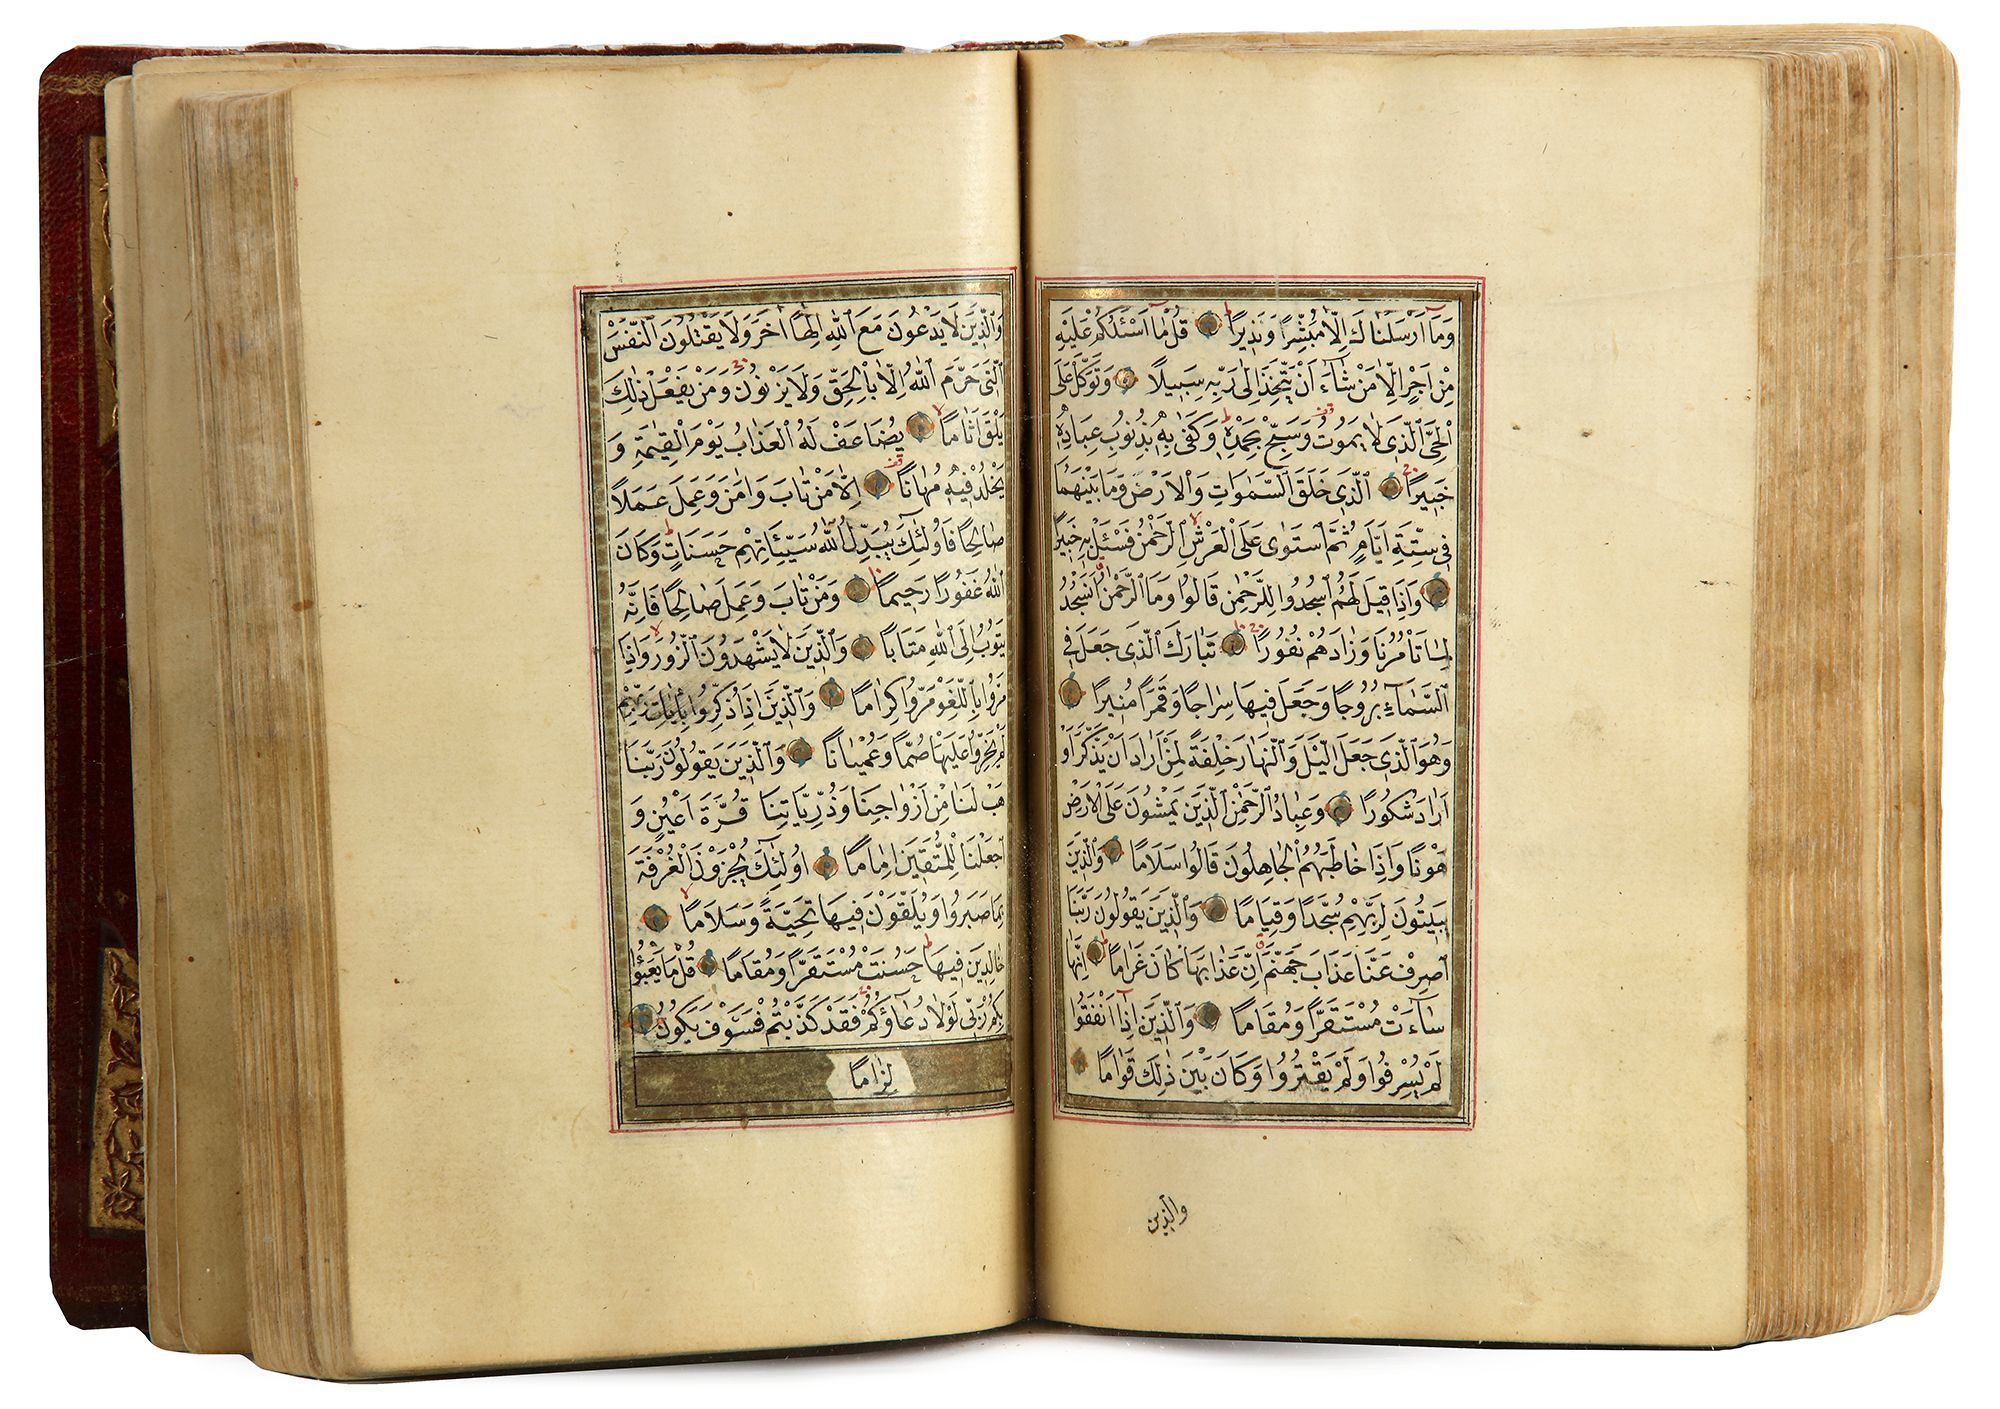 وَمَآ اَرْسَلْنَاكَ اِلَّا مُبَشِّرًا وَنَذِيرًا قُلْ مَٓا اَسْئَلُكُمْ عَلَيْهِ
مِنْ اَجْرٍ اِلَّا مَنْ شَٓاءَ اَنْ يَتَّخِذَ اِلٰى رَبِّهِ سَبِيلًا وَتَوَكَّلْ عَلَى
الْحَىِّ الَّذِى لَا يَمُوتُ وَسَبِّحْ بِحَمْدِهِ وَكَفٰى بِهِ بِذُنُوبِ عِبَادِهِ
خَبِيرًا الَّذِى خَلَقَ السَّمٰوَاتِ وَالْاَرْضَ وَمَا بَيْنَهُمَا
فِى سِتَّةِ اَيَّامٍ ثُمَّ اسْتَوٰى عَلَى الْعَرْشِ الرَّحْمٰنُ فَسْئَلْ بِهِ خَبِيرًا
وَاِذَا قِيلَ لَهُمُ اسْجُدُوا لِلرَّحْمٰنِ قَالُوا وَمَا الرَّحْمٰنُ اَنَسْجُدُ
لِمَا تَأْمُرُنَا وَزَادَهُمْ نُفُورًا تَبَارَكَ الَّذِى جَعَلَ فِى
السَّمَٓاءِ بُرُوجًا وَجَعَلَ فِيهَا سِرَاجًا وَقَمَرًا مُنِيرًا
وَهُوَ الَّذِى جَعَلَ الَّيْلَ وَالنَّهَارَ خِلْفَةً لِمَنْ اَرَادَ اَنْ يَذَّكَّرَ اَوْ
اَرَادَ شُكُورًا وَعِبَادُ الرَّحْمٰنِ الَّذِينَ يَمْشُونَ عَلَى الْاَرْضِ
هَوْنًا وَاِذَا خَاطَبَهُمُ الْجَاهِلُونَ قَالُوا سَلَامًا وَالَّذِينَ
يَبِيتُونَ لِرَبِّهِمْ سُجَّدًا وَقِيَامًا وَالَّذِينَ يَقُولُونَ رَبَّنَا
اصْرِفْ عَنَّا عَذَابَ جَهَنَّمَ اِنَّ عَذَابَهَا كَانَ غَرَامًا اِنَّهَا
سَٓاءَتْ مُسْتَقَرًّا وَمُقَامًا وَالَّذِينَ اِذَٓا اَنْفَقُوا
لَمْ يُسْرِفُوا وَلَمْ يَقْتُرُوا وَكَانَ بَيْنَ ذٰلِكَ قَوَامًا
والذين
وَالَّذِينَ لَا يَدْعُونَ مَعَ اللّٰهِ اِلٰهًا اٰخَرَ وَلَا يَقْتُلُونَ النَّفْسَ
الَّتِى حَرَّمَ اللّٰهُ اِلَّا بِالْحَقِّ وَلَا يَزْنُونَ وَمَنْ يَفْعَلْ ذٰلِكَ
يَلْقَ اَثَامًا يُضَاعَفْ لَهُ الْعَذَابُ يَوْمَ الْقِيٰمَةِ وَ
يَخْلُدْ فِيهِ مُهَانًا اِلَّا مَنْ تَابَ وَاٰمَنَ وَعَمِلَ عَمَلًا
صَالِحًا فَاُولٰٓئِكَ يُبَدِّلُ اللّٰهُ سَيِّئَاتِهِمْ حَسَنَاتٍ وَكَانَ
اللّٰهُ غَفُورًا رَحِيمًا وَمَنْ تَابَ وَعَمِلَ صَالِحًا فَاِنَّهُ
يَتُوبُ اِلَى اللّٰهِ مَتَابًا وَالَّذِينَ لَا يَشْهَدُونَ الزُّورَ وَاِذَا
مَرُّوا بِاللَّغْوِ مَرُّوا كِرَامًا وَالَّذِينَ اِذَا ذُكِّرُوا بِاٰيَاتِ رَبِّهِمْ
لَمْ يَخِرُّوا عَلَيْهَا صُمًّا وَعُمْيَانًا وَالَّذِينَ يَقُولُونَ رَبَّنَا
هَبْ لَنَا مِنْ اَزْوَاجِنَا وَذُرِّيَّاتِنَا قُرَّةَ اَعْيُنٍ وَ
اجْعَلْنَا لِلْمُتَّقِينَ اِمَامًا اُولٰٓئِكَ يُجْزَوْنَ الْغُرْفَةَ
بِمَا صَبَرُوا وَيُلَقَّوْنَ فِيهَا تَحِيَّةً وَسَلَامًا
خَالِدِينَ فِيهَا حَسُنَتْ مُسْتَقَرًّا وَمُقَامًا قُلْ مَا يَعْبَؤُا
بِكُمْ رَبِّى لَوْلَا دُعَٓاؤُكُمْ فَقَدْ كَذَّبْتُمْ فَسَوْفَ يَكُونُ
لِزَامًا